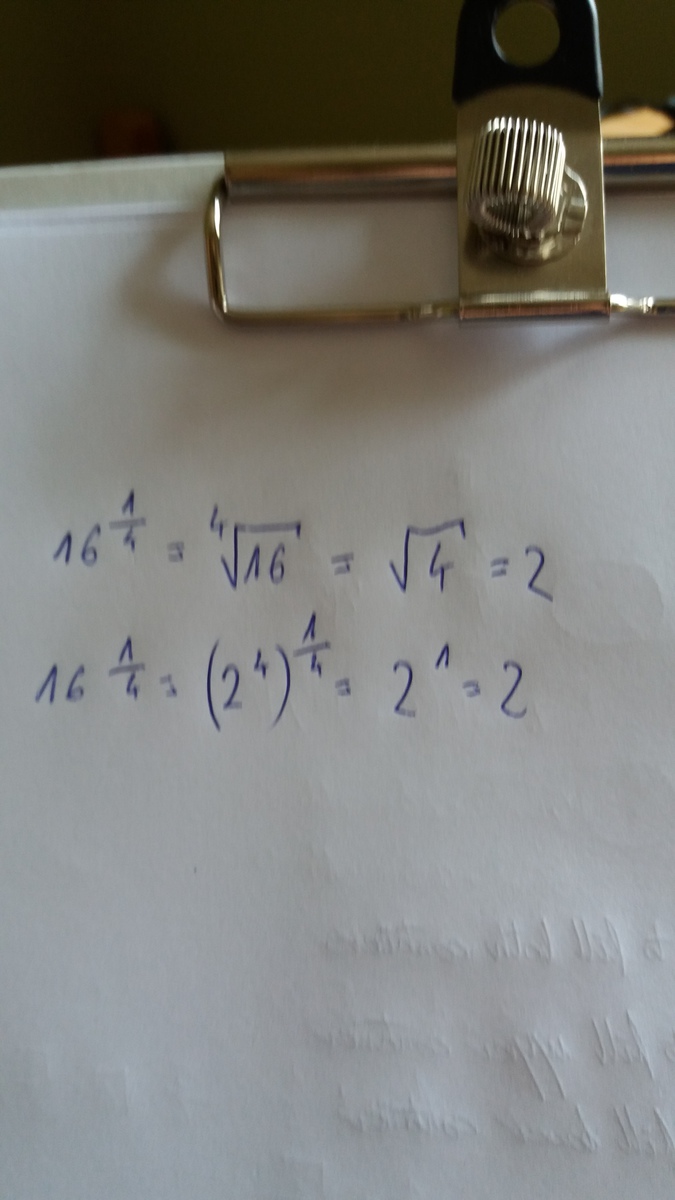 16^{1/4} = ⁴√16 = √4 = 2
16^{1/4} = (2⁴)^{1/4} = 2¹ = 2